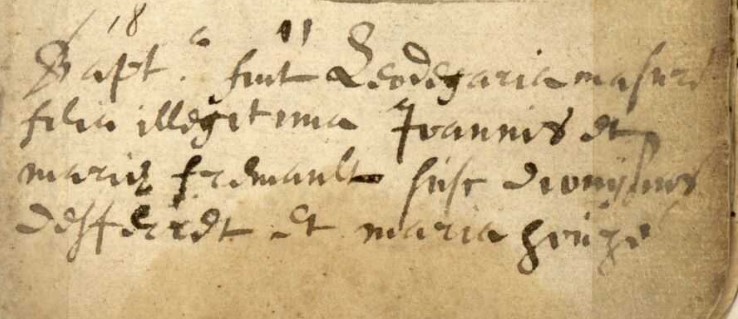 18
Bapt. a fuit Leodegaria masure
filia illegitima Joannis et
mariæ fremault susc dionysius
desferet et maria